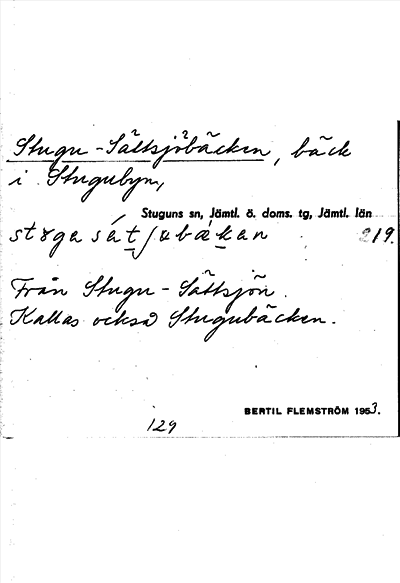 Stugu-Sättsjöbäcken, bäck
i Stugubyn,
Stuguns sn, Jämtl. ö. doms. tg, Jämtl. län
219.
Från Stugu-Sättsjön.
Kallas också Stugubäcken.
BERTIL FLEMSTRÖM 1953.
129